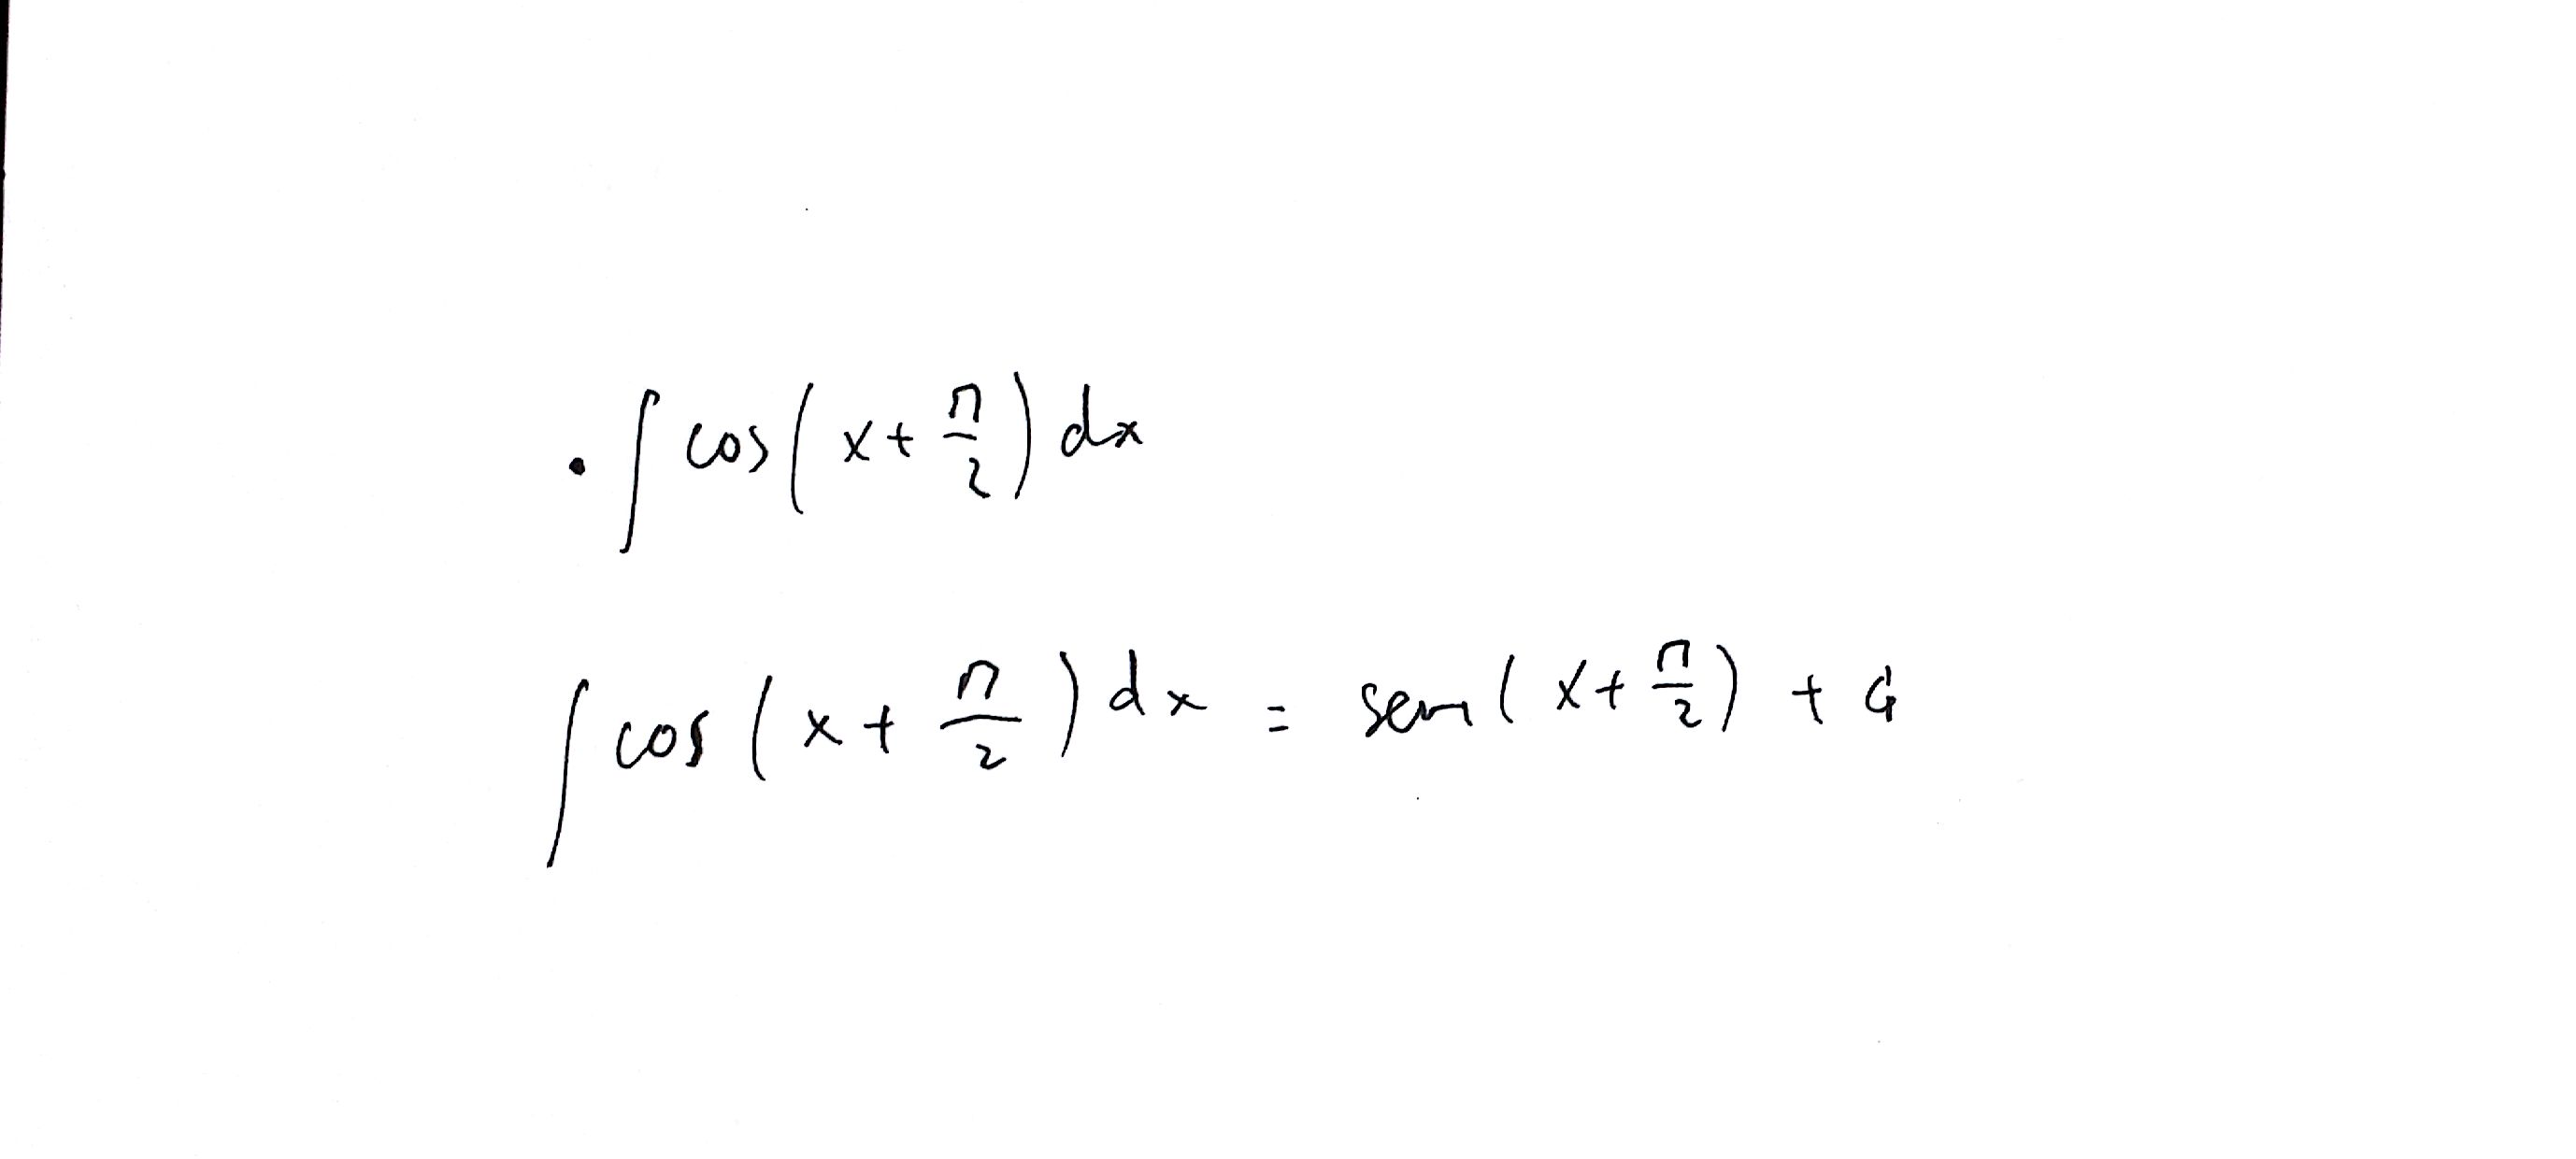 · ∫ cos(x + π/2) dx
∫ cos(x + π/2) dx = sen(x + π/2) + C